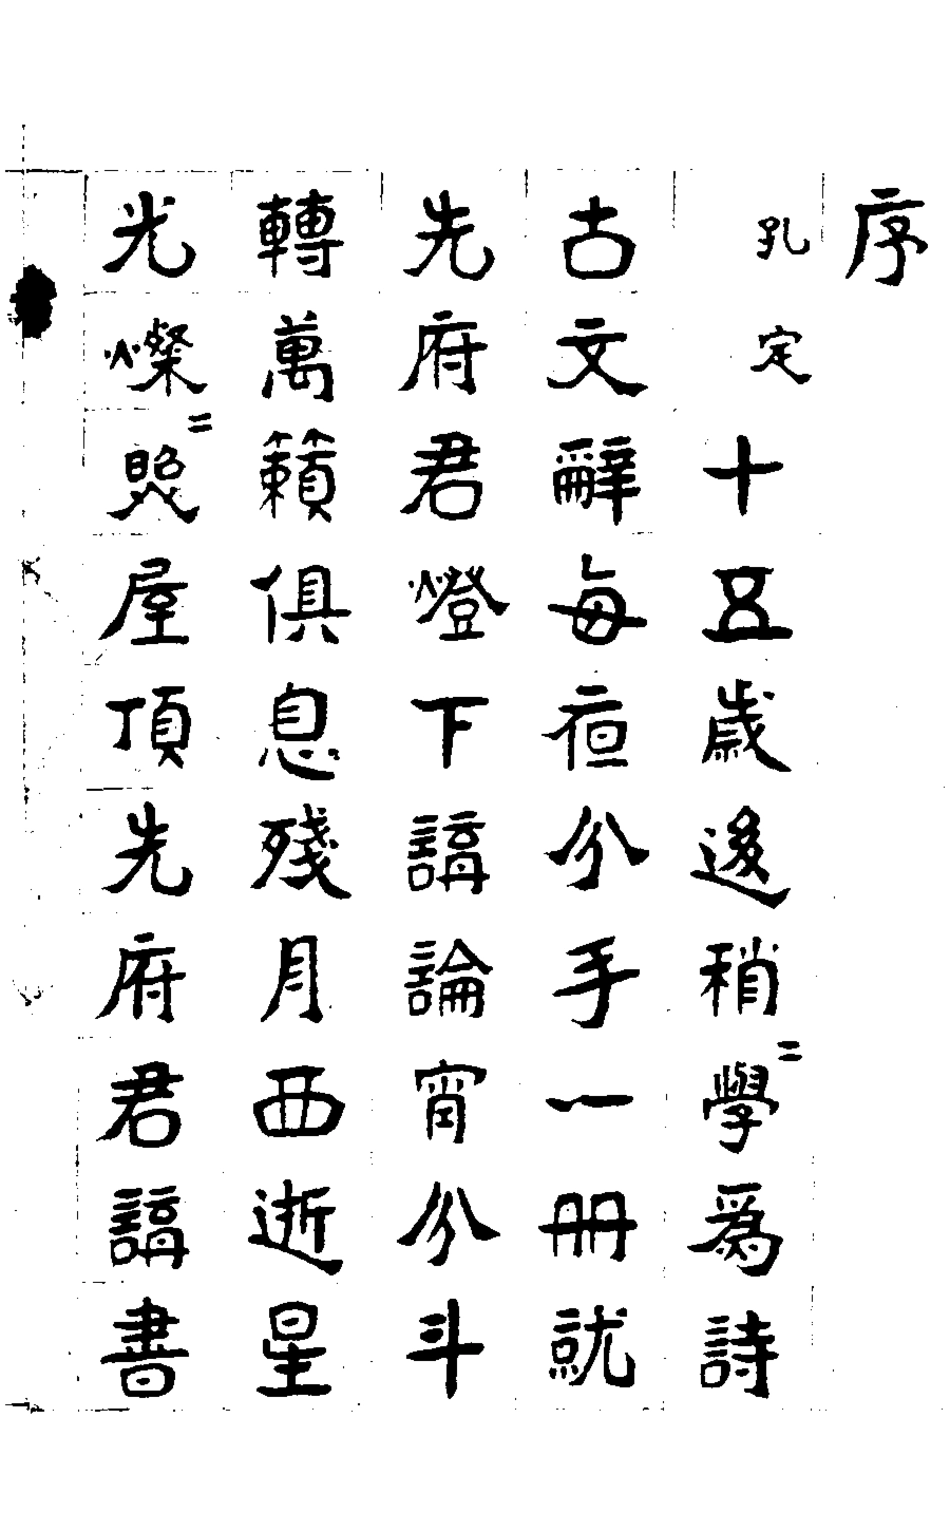 序
孔定十五歲後稍〻學爲詩
古文辭每亱分手一册就
先府君燈下講論宵分斗
轉萬籟俱息殘月西逝星
光燦〻照屋頂先府君講書